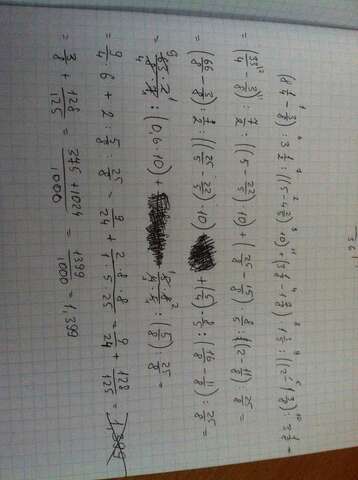 (8 1/4 - 3/8) : 3 1/2 : ((5 - 4 2/5) · 10) + (3 1/8 - 1 7/8) · 1 3/5 : ((2 - 1 3/8) : 3 1/8 =
= (33/4 - 3/8) : 7/2 : ((5 - 22/5) · 10 + (25/8 - 15/8) · 8/5 : (2 - 11/8) : 25/8 =
= (66/8 - 3/8) : 7/2 : ((25/5 - 22/5) · 10) + (5/4) · 8/5 : (16/8 - 11/8) : 25/8 =
= 63 · 2 / 8 · 7 : (0,6 · 10) + : (5/8) : 25/8 =
= 9/4 · 6 + 2 : 5/8 : 25/8 = 9/24 + 2 · 8 · 8 / 1 · 5 · 25 = 9/24 + 128/125 =
= 3/8 + 128/125 = 375 + 1024 / 1000 = 1399/1000 = 1,399